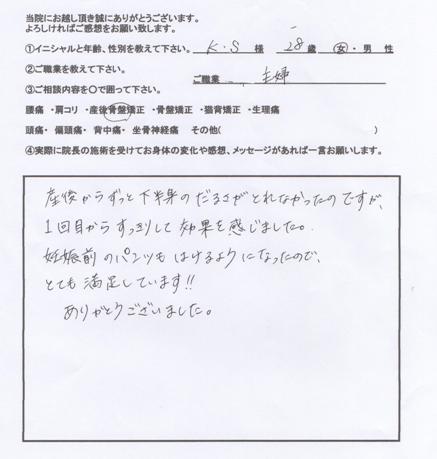 当院にお越し頂き誠にありがとうございます。
よろしければご感想をお願い致します。
①イニシャルと年齢、性別を教えて下さい。 K.S 様 28 歳 女・男 性
②ご職業を教えて下さい。 ご職業 主婦
③ご相談内容を〇で囲って下さい。
腰痛 ・肩コリ ・産後骨盤矯正 ・骨盤矯正 ・猫背矯正 ・生理痛
頭痛・ 偏頭痛・ 背中痛・ 坐骨神経痛 その他( )
④実際に院長の施術を受けてお身体の変化や感想、メッセージがあれば一言お願いします。
産後からずっと下半身のだるさがとれなかったのですが、
1回目からすっきりして効果を感じました。
妊娠前のパンツもはけるようになったので、
とても満足しています!!
ありがとうございました。